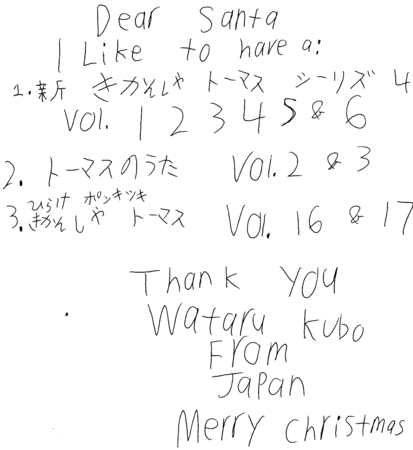 Dear Santa
I Like to have a:
1. 新 きかんしゃ トーマス シーリズ 4
Vol. 1 2 3 4 5 & 6
2. トーマスのうた Vol. 2 & 3
ひらけ ポンキッキ
3. きかんしゃ トーマス Vol. 16 & 17
Thank you
Wataru Kubo
From
Japan
Merry Christmas